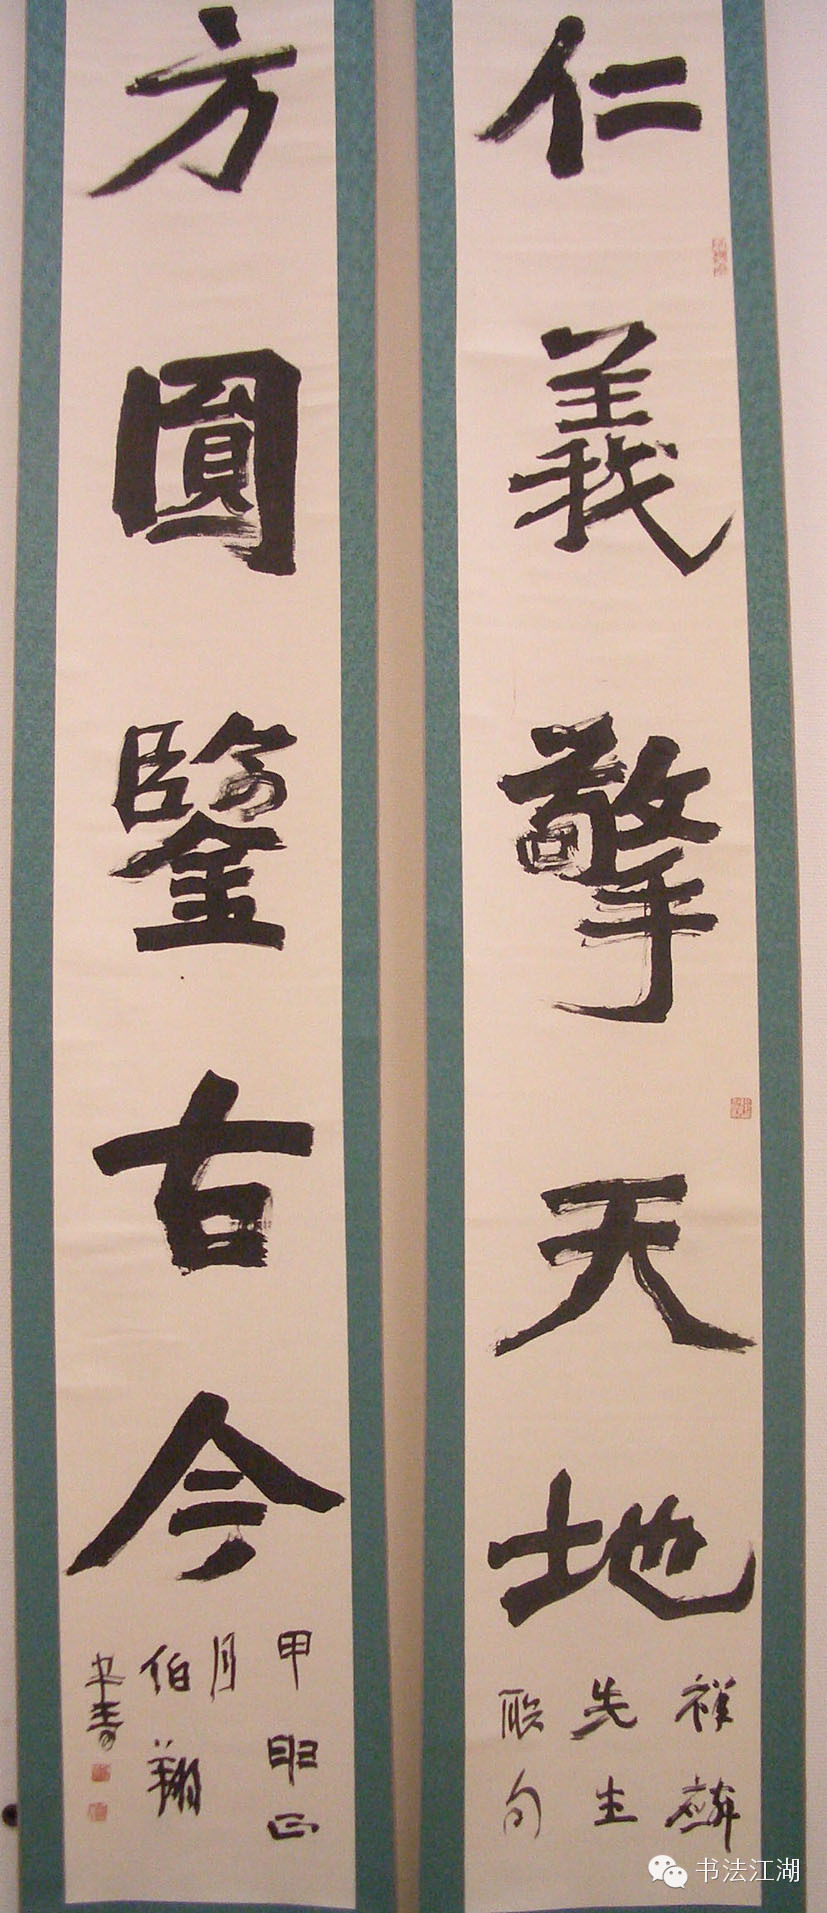 仁義擎天地
祥麟
先生
联句
方圓鑒古今
甲申正
月
伯翔
书法江湖